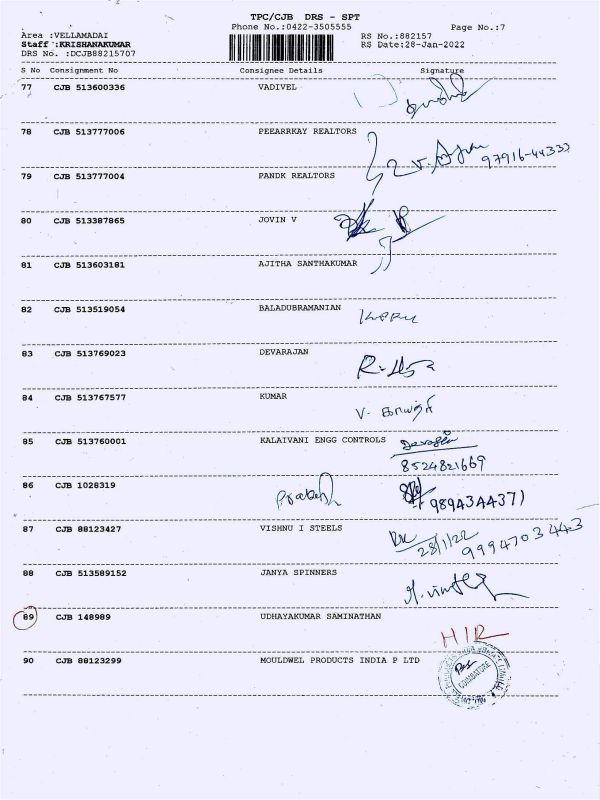 TPC/CJB DRS - SPT
Phone No.:0422-3505555 Page No.:7
Area :VELLAMADAI RS No.:882157
Staff :KRISHANAKUMAR RS Date:28-Jan-2022
DRS No. :DCJB88215707
S No Consignment No Consignee Details Signature
77 CJB 513600336 VADIVEL
78 CJB 513777006 PEEARRKAY REALTORS
97916-44333
79 CJB 513777004 PANDK REALTORS
80 CJB 513387865 JOVIN V
81 CJB 513603181 AJITHA SANTHAKUMAR
82 CJB 513519054 BALADUBRAMANIAN
83 CJB 513769023 DEVARAJAN
84 CJB 513767577 KUMAR
85 CJB 513760001 KALAIVANI ENGG CONTROLS
8524821669
86 CJB 1028319
Prakash 9894344371
87 CJB 88123427 VISHNU I STEELS
28/1/22 9994703443
88 CJB 513589152 JANYA SPINNERS
89 CJB 148989 UDHAYAKUMAR SAMINATHAN
HIR
90 CJB 88123299 MOULDWEL PRODUCTS INDIA P LTD
COIMBATORE